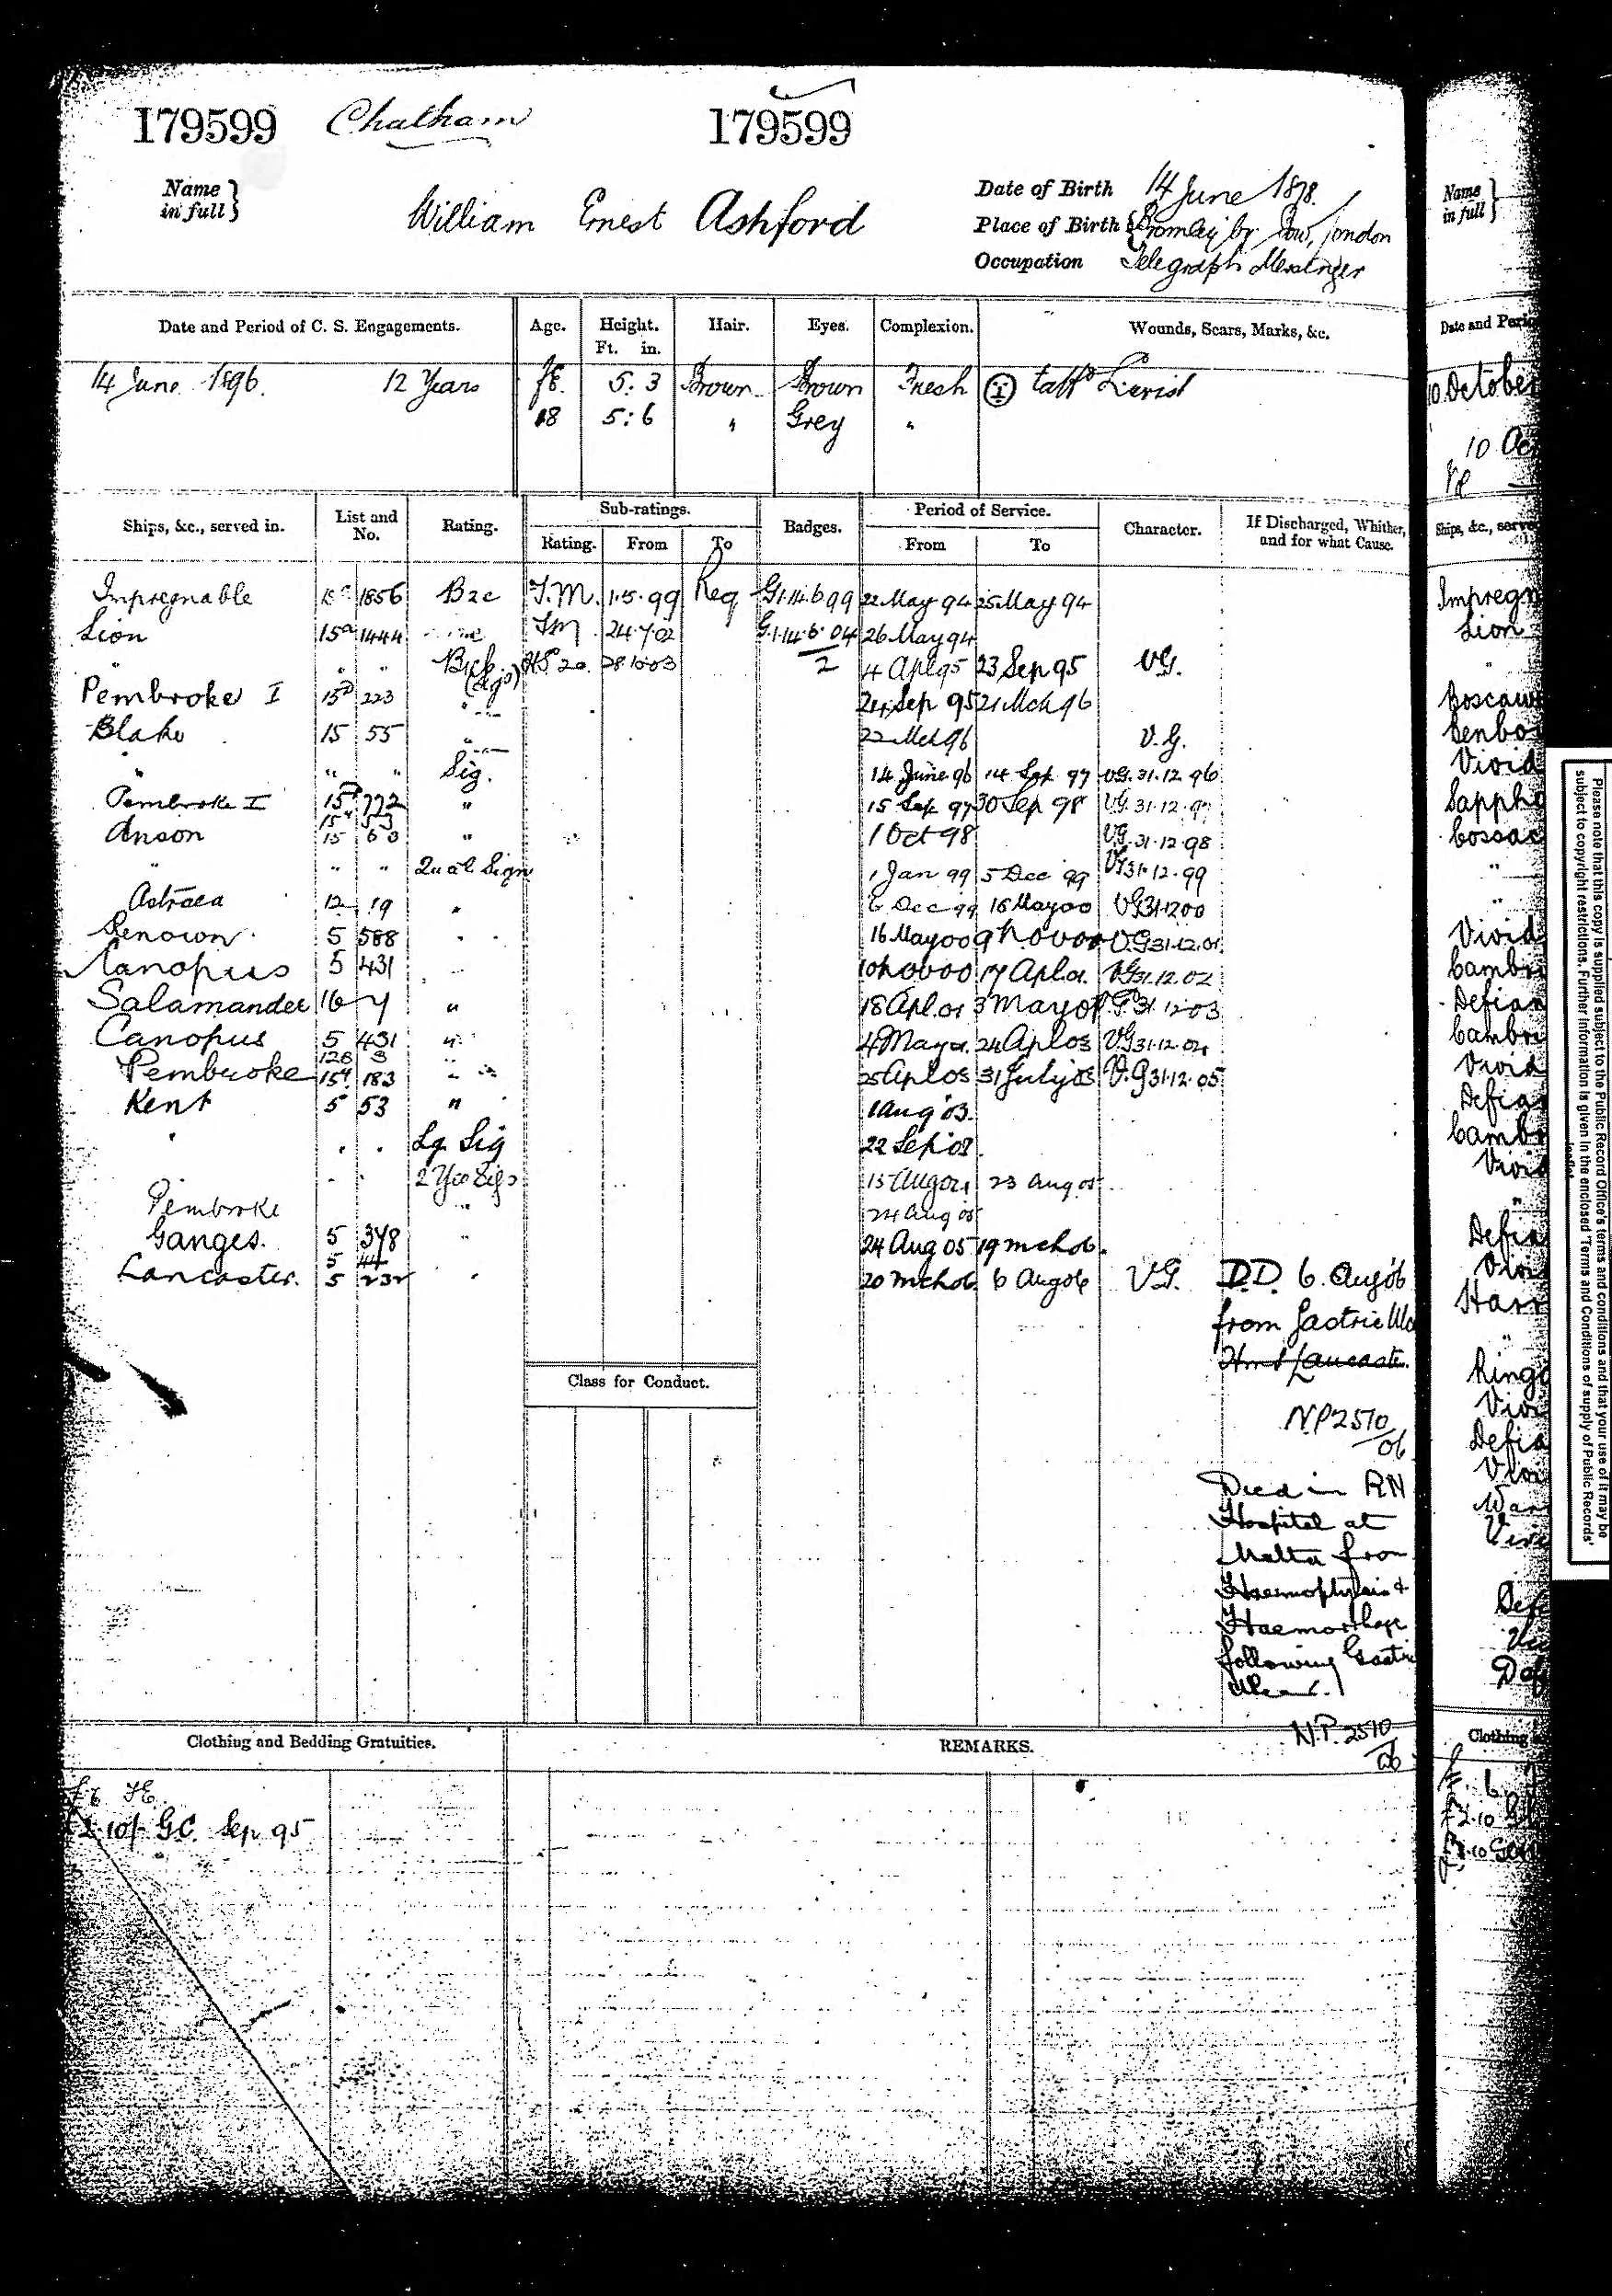 179599 Chatham 179599
Name in full } William Ernest Ashford
Date of Birth 14 June 1878.
Place of Birth { Bromley by Bow, London
Occupation Telegraph Messenger
Date and Period of C. S. Engagements. Age. Height. Ft. in. Hair. Eyes. Complexion. Wounds, Scars, Marks, &c.
14 June 1896. 12 Years 5. 3 Brown Brown Fresh
18 5: 6 " Grey "
Ships, &c., served in. List and No. Rating. Sub-ratings. Badges. Period of Service. Character. If Discharged, Whither, and for what Cause.
Rating. From To From To
Impregnable 1856 B2c T.M. 1.5.99 Req G.1.14.6.99 22 May 94 25 May 94
Lion 15a 1444 TM 24.7.02 G.1.14.6.04 26 May 94
" " " 28.10.03 2 4 Apl 95 23 Sep 95 VG.
Pembroke I 15 223 " 24 Sep 95 21 Mch 96
Blake 15 55 " 22 Mch 96 V.G.
" " " Sig. 14 June 96 14 Sep 97 VG.31.12.96
Pembroke I 15 772 " 15 Sep 97 30 Sep 98 VG.31.12.97
15 53
Anson 15 63 " 1 Oct 98 VG.31.12.98
" " " Qual Sign 1 Jan 99 5 Dec 99 VG31.12.99
Astraea 12 19 " 6 Dec 99 15 May 00 VG31.12.00
Renown 5 588 " 16 May 00 9 Nov 00 V.G31.12.01
Canopus 5 431 10 Nov 00 17 Apl 01. VG31.12.02
Salamander 16 7 " 18 Apl.01 3 May 01 VG 31.12.03
Canopus 5 431 " 4 May 01. 24 Apl 03 VG31.12.04
126 3
Pembroke 15 183 " 25 Apl 03 31 July 03 V.G31.12.05
Kent 5 53 " 1 Aug 03.
" . . Lg Sig 22 Sep 03.
" " 2 Yeo Sigs 15 Aug 04 23 Aug 05
Pembroke " 24 Aug 05
Ganges. 5 378 " 24 Aug 05 19 Mch 06.
5 44
Lancaster. 5 232 " 20 Mch 06. 6 Aug 06 VG. D.D. 6. Aug 06
from Gastric
HMS Lancaster.
Class for Conduct.
N.P 2510/06
Died in RN
Hospital at
Malta from
Haemophysis &
Haemorrhage
following Gastric
Ulcer.
Clothing and Bedding Gratuities. REMARKS. N.P. 2510/06
10/- GC. Sep 95
Name in full }
Date and Perio
10 October
10 Oc
Ships, &c., serve
Impregn
Lion
"
Boscaw
Benbo
Vivid
Sappho
Cossac
"
"
Vivid
Cambri
Defian
Cambri
Vivid
Defian
Cambr
Vivid
"
Defia
Vivi
Harr
"
Ringd
Vivi
Defia
Vivi
War
Vivi
Defe
Def
Clothing
Please note that this copy is supplied subject to the Public Record Office's terms and conditions and that your use of it may be
subject to copyright restrictions. Further information is given in the enclosed 'Terms and Conditions of supply of Public Records'
leaflet